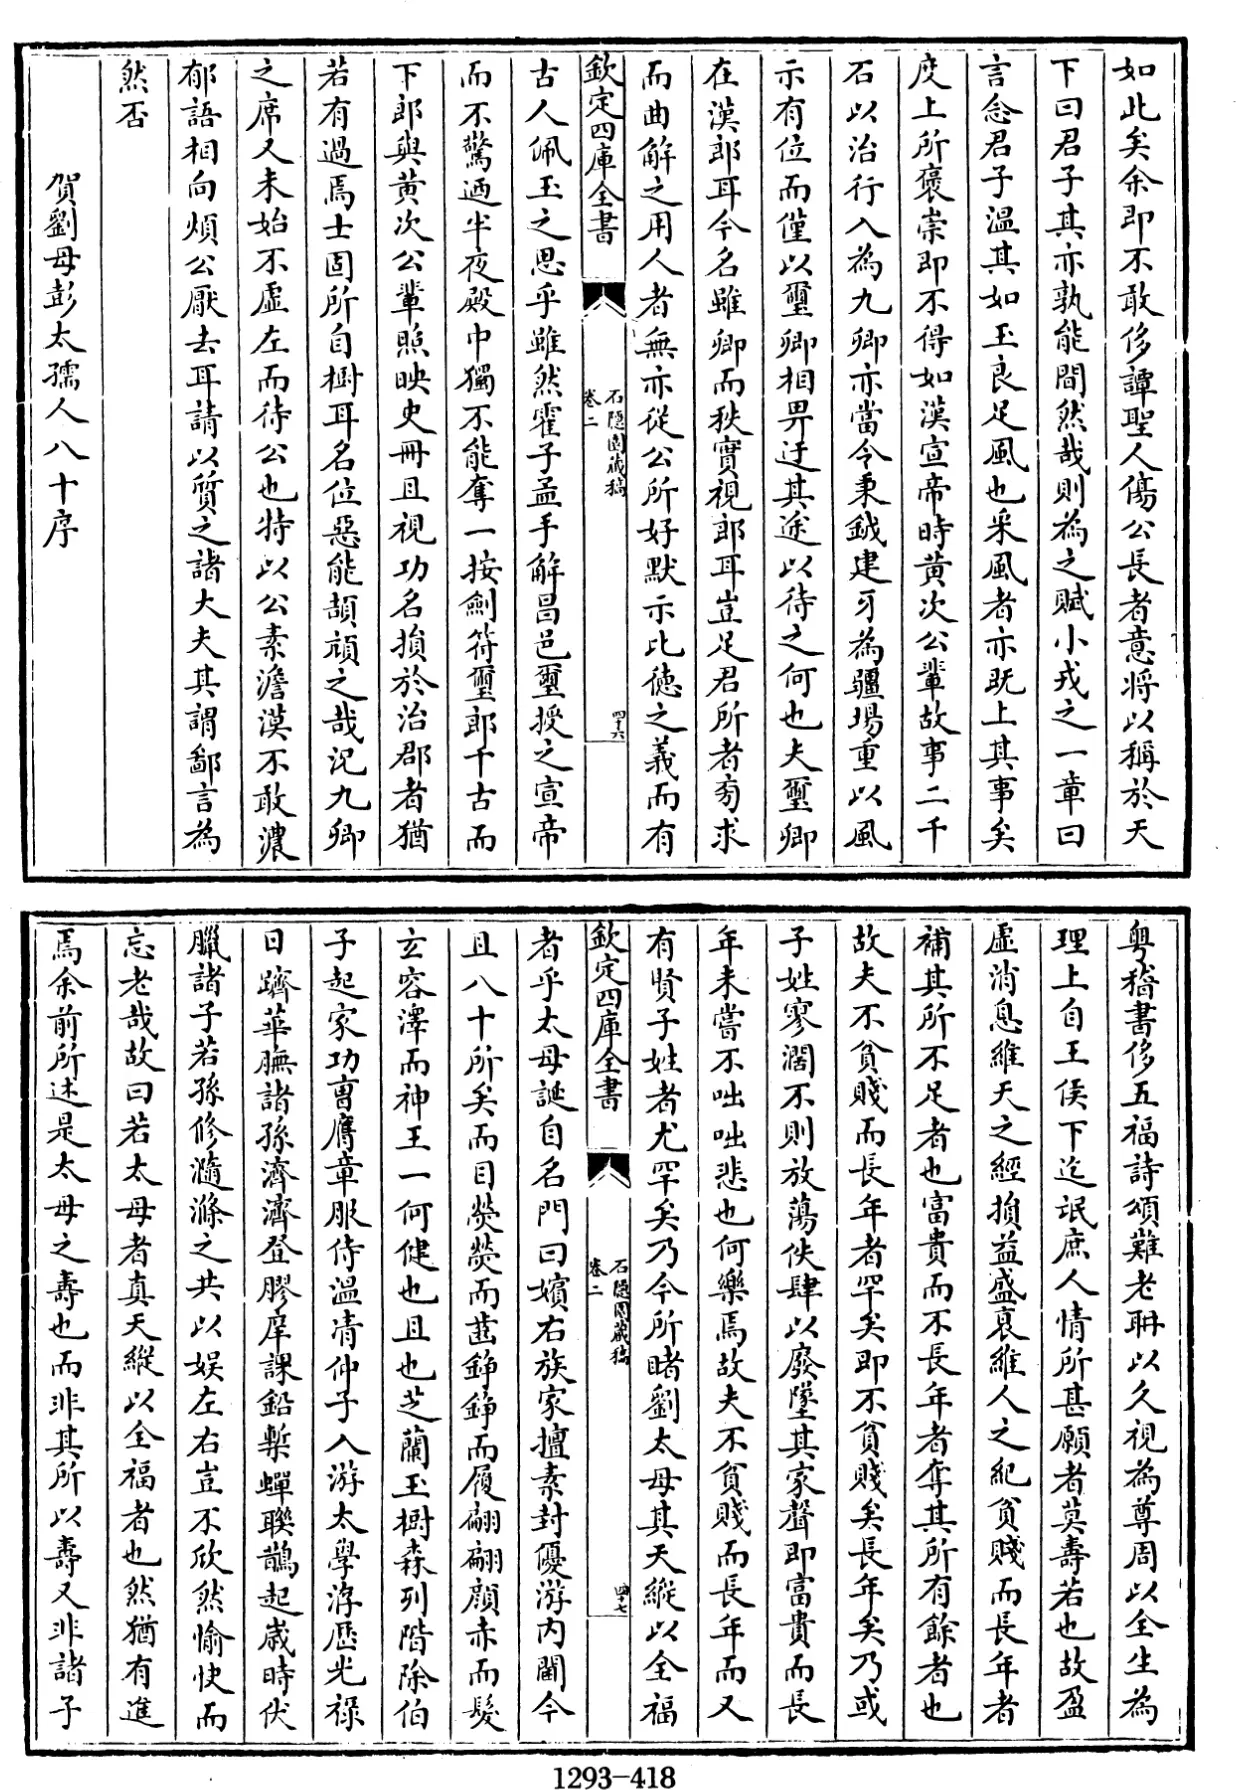 如此矣余即不敢侈譚聖人傷公長者意將以稱於天
下曰君子其亦孰能間然哉則為之賦小戎之一章曰
言念君子溫其如玉良足風也采風者亦既上其事矣
度上所褒崇即不得如漢宣帝時黄次公輩故事二千
石以治行入為九卿亦當令秉鉞建牙為疆場重以風
示有位而僅以璽卿相畀迂其途以待之何也夫璽卿
在漢郎耳今名雖卿而秩實視郎耳豈足君所者旁求
而曲解之用人者無亦從公所好默示比德之義而有
欽定四庫全書
石隱園藏稿
卷二
四十六
古人佩玉之思乎雖然霍子孟手解昌邑璽授之宣帝
而不驚迺半夜殿中獨不能奪一按劍符璽郎千古而
下郎與黄次公輩照映史冊且視功名損於治郡者猶
若有過焉士固所自樹耳名位惡能頡頏之哉況九卿
之席又未始不虛左而待公也特以公素澹漠不敢濃
郁語相向煩公厭去耳請以質之諸大夫其謂鄙言為
然否
賀劉母彭太孺人八十序
粤稽書侈五福詩頌難老聃以久視為尊周以全生為
理上自王侯下迄氓庶人情所甚願者莫壽若也故盈
虛消息維天之經損益盛衰維人之紀貧賤而長年者
補其所不足者也富貴而不長年者奪其所有餘者也
故夫不貧賤而長年者罕矣即不貧賤矣長年矣乃或
子姓寥濶不則放蕩佚肆以廢墜其家聲即富貴而長
年未嘗不咄咄悲也何樂焉故夫不貧賤而長年而又
有賢子姓者尤罕矣乃今所睹劉太母其天縱以全福
欽定四庫全書
石隱園藏稿
卷二
四十七
者乎太母誕自名門曰嬪右族家擅素封優游内閫今
且八十所矣而目熒熒而齒錚錚而履翩翩顏赤而髮
玄容澤而神王一何健也且也芝蘭玉樹森列階除伯
子起家功曺膺章服侍溫凊仲子入游太學洊歷光祿
日躋華膴諸孫濟濟登膠庠課鉛槧蟬聯鵲起歲時伏
臘諸子若孫修瀡滌之共以娱左右豈不欣然愉快而
忘老哉故曰若太母者真天縱以全福者也然猶有進
焉余前所述是太母之壽也而非其所以壽又非諸子
1293-418